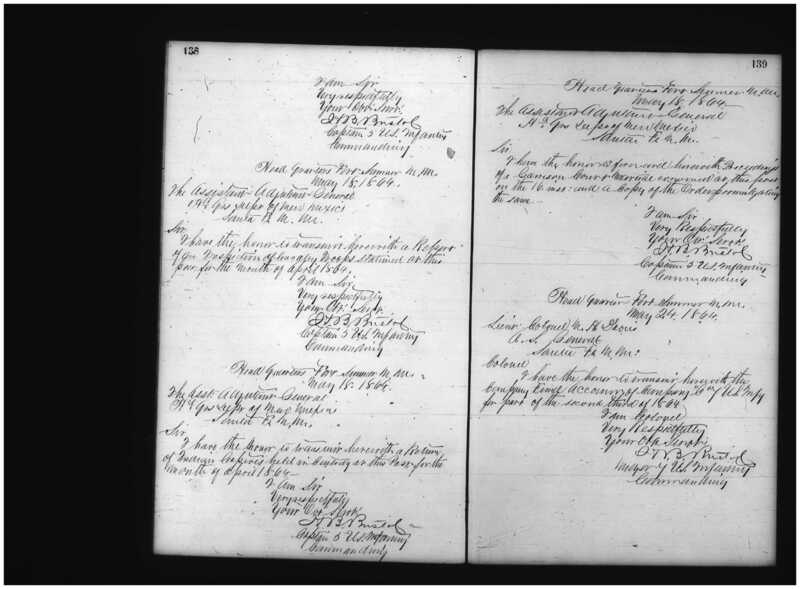 138
I am Sir
Very respectfully
Your Obt Servt
H B Bristol
Captain 5 U.S. Infantry
Commanding
Head Quarters Fort Sumner N. M.
May 18. 1864.
The Assistant Adjutant General
Hd Qrs Dept of New Mexico
Santa Fe N. M.
Sir
I have the honor to transmit herewith a Report
of an Inspection of Cavalry Troops stationed at this
post for the month of April 1864.
I am Sir
Very respectfully
Your Obt Servt
H B Bristol
Captain 5 U.S. Infantry
Commanding
Head Quarters Fort Sumner N. M.
May 18. 1864.
The Asst Adjutant General
Hd Qrs Dept of New Mexico
Santa Fe N. M.
Sir
I have the honor to transmit herewith a Return
of Indian Captives held in Custody at this Post for the
Month of April 1864
I Am Sir
Very respectfully
Your Obt Servt
H. B. Bristol
Captain 5 U.S. Infantry
Commanding
139
Head Quarters Fort Sumner N. M.
May 18. 1864.
The Assistant Adjutant General
Hd Qrs Dept of New Mexico
Santa Fe N. M.
Sir
I have the honor to forward herewith Proceedings
of a Garrison Court Martial convened at this post
on the 16 inst: and a Copy of the Order promulgating
the same
I am Sir
Very Respectfully
Your Obt Servt
H. B. Bristol
Captain 5 U.S. Infantry
Commanding
Head Quarters Fort Sumner N. M.
May 24. 1864.
Lieut Colonel N. H Davis
A. I. General
Santa Fe N. M.
Colonel
I have the honor to transmit herewith the
Company Fund Account of Company U.S. Infy
for part of the second third of 1864
I am Colonel
Very Respectfully
Your Obt Servt
H B Bristol
U.S. Infantry
Commanding